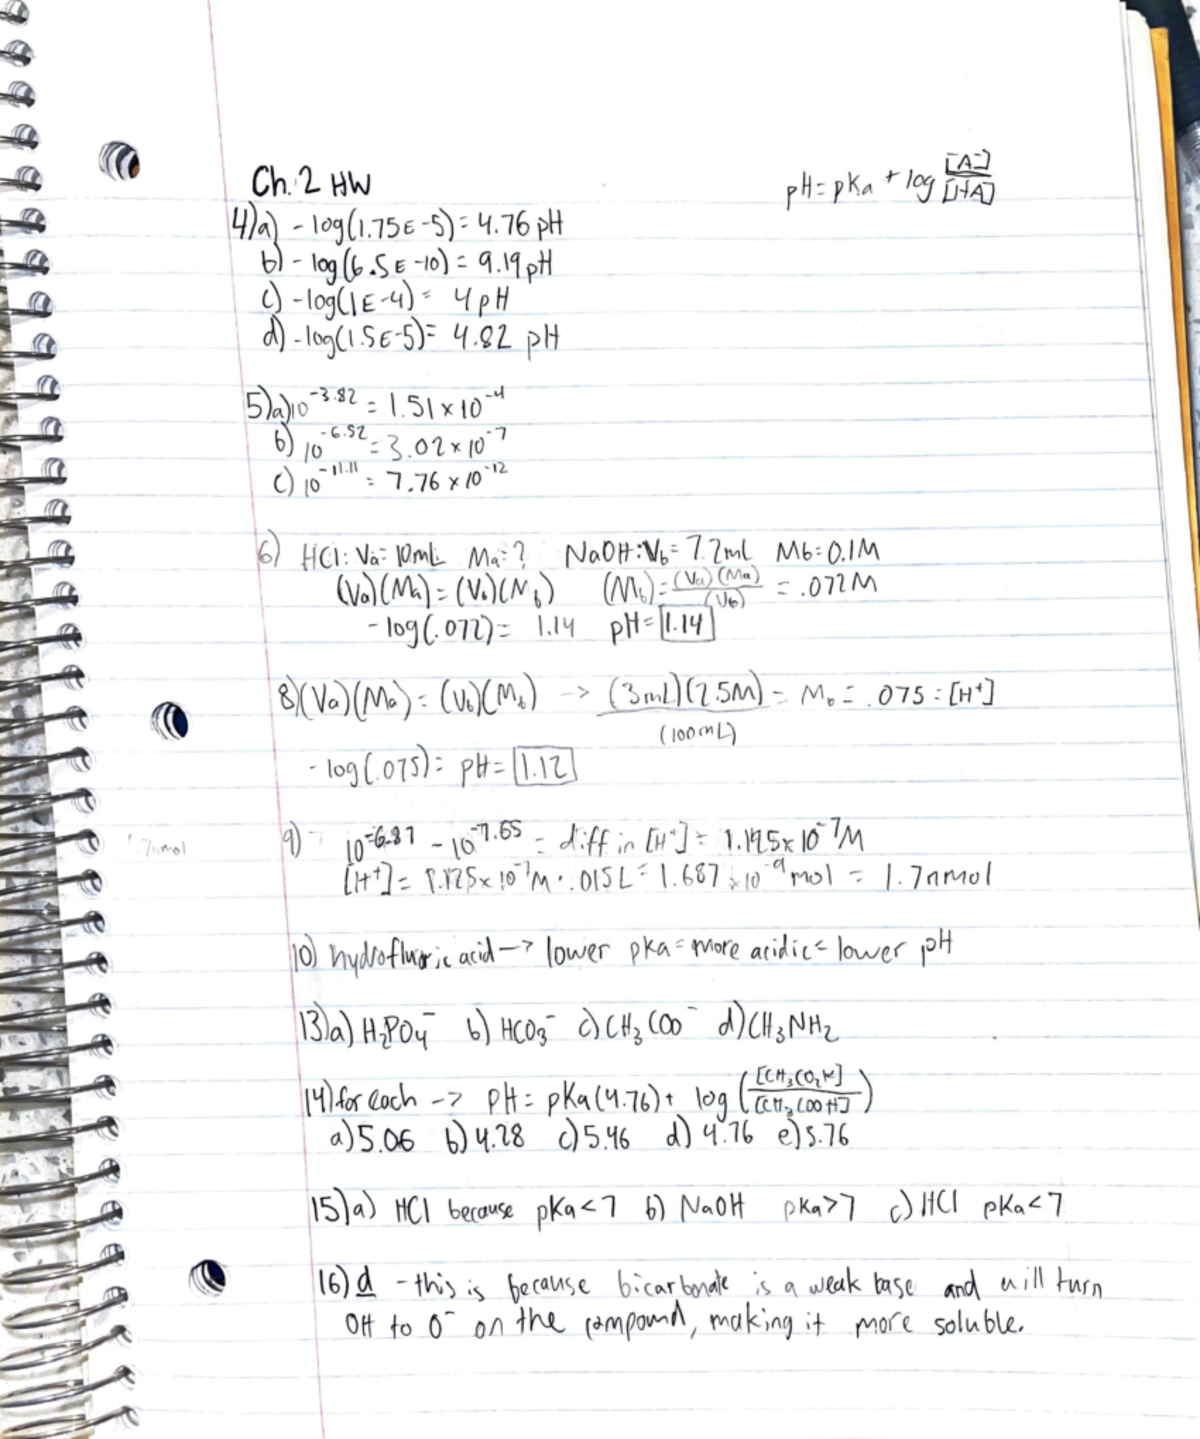 Ch. 2 HW
pH = pKa + log [A-]/[HA]
4)a) - log(1.75E-5) = 4.76 pH
b) - log(6.5E-10) = 9.19 pH
c) - log(1E-4) = 4 pH
d) - log(1.5E-5) = 4.82 pH
5)a) 10^-3.82 = 1.51 x 10^-4
b) 10^-6.52 = 3.02 x 10^-7
c) 10^-11.11 = 7.76 x 10^-12
6) HCl: Va = 10mL Ma = ? NaOH: Vb = 7.2mL Mb = 0.1M
(Va)(Ma) = (Vb)(Mb) (Mb) = (Va)(Ma)/(Vb) = .072M
- log(.072) = 1.14 pH = 1.14
8)(Va)(Ma) = (Vb)(Mb) -> (3mL)(2.5M)/(100mL) = Mb = .075 = [H+]
- log(.075) = pH = 1.12
9) 10^-6.87 - 10^-7.65 = diff in [H+] = 1.125 x 10^-7 M
7nmol
[H+] = 1.125 x 10^-7 M · .015L = 1.687 x 10^-9 mol = 1.7nmol
10) hydrofluoric acid -> lower pka = more acidic = lower pH
13)a) H2PO4- b) HCO3- c) CH3COO- d) CH3NH2
14) for each -> pH = pKa(4.76) + log ([CH3CO2K]/[CH3COOH])
a) 5.06 b) 4.28 c) 5.46 d) 4.76 e) 5.76
15)a) HCl because pKa<7 b) NaOH pKa>7 c) HCl pKa<7
16) d - this is because bicarbonate is a weak base and will turn
OH to O- on the compound, making it more soluble.